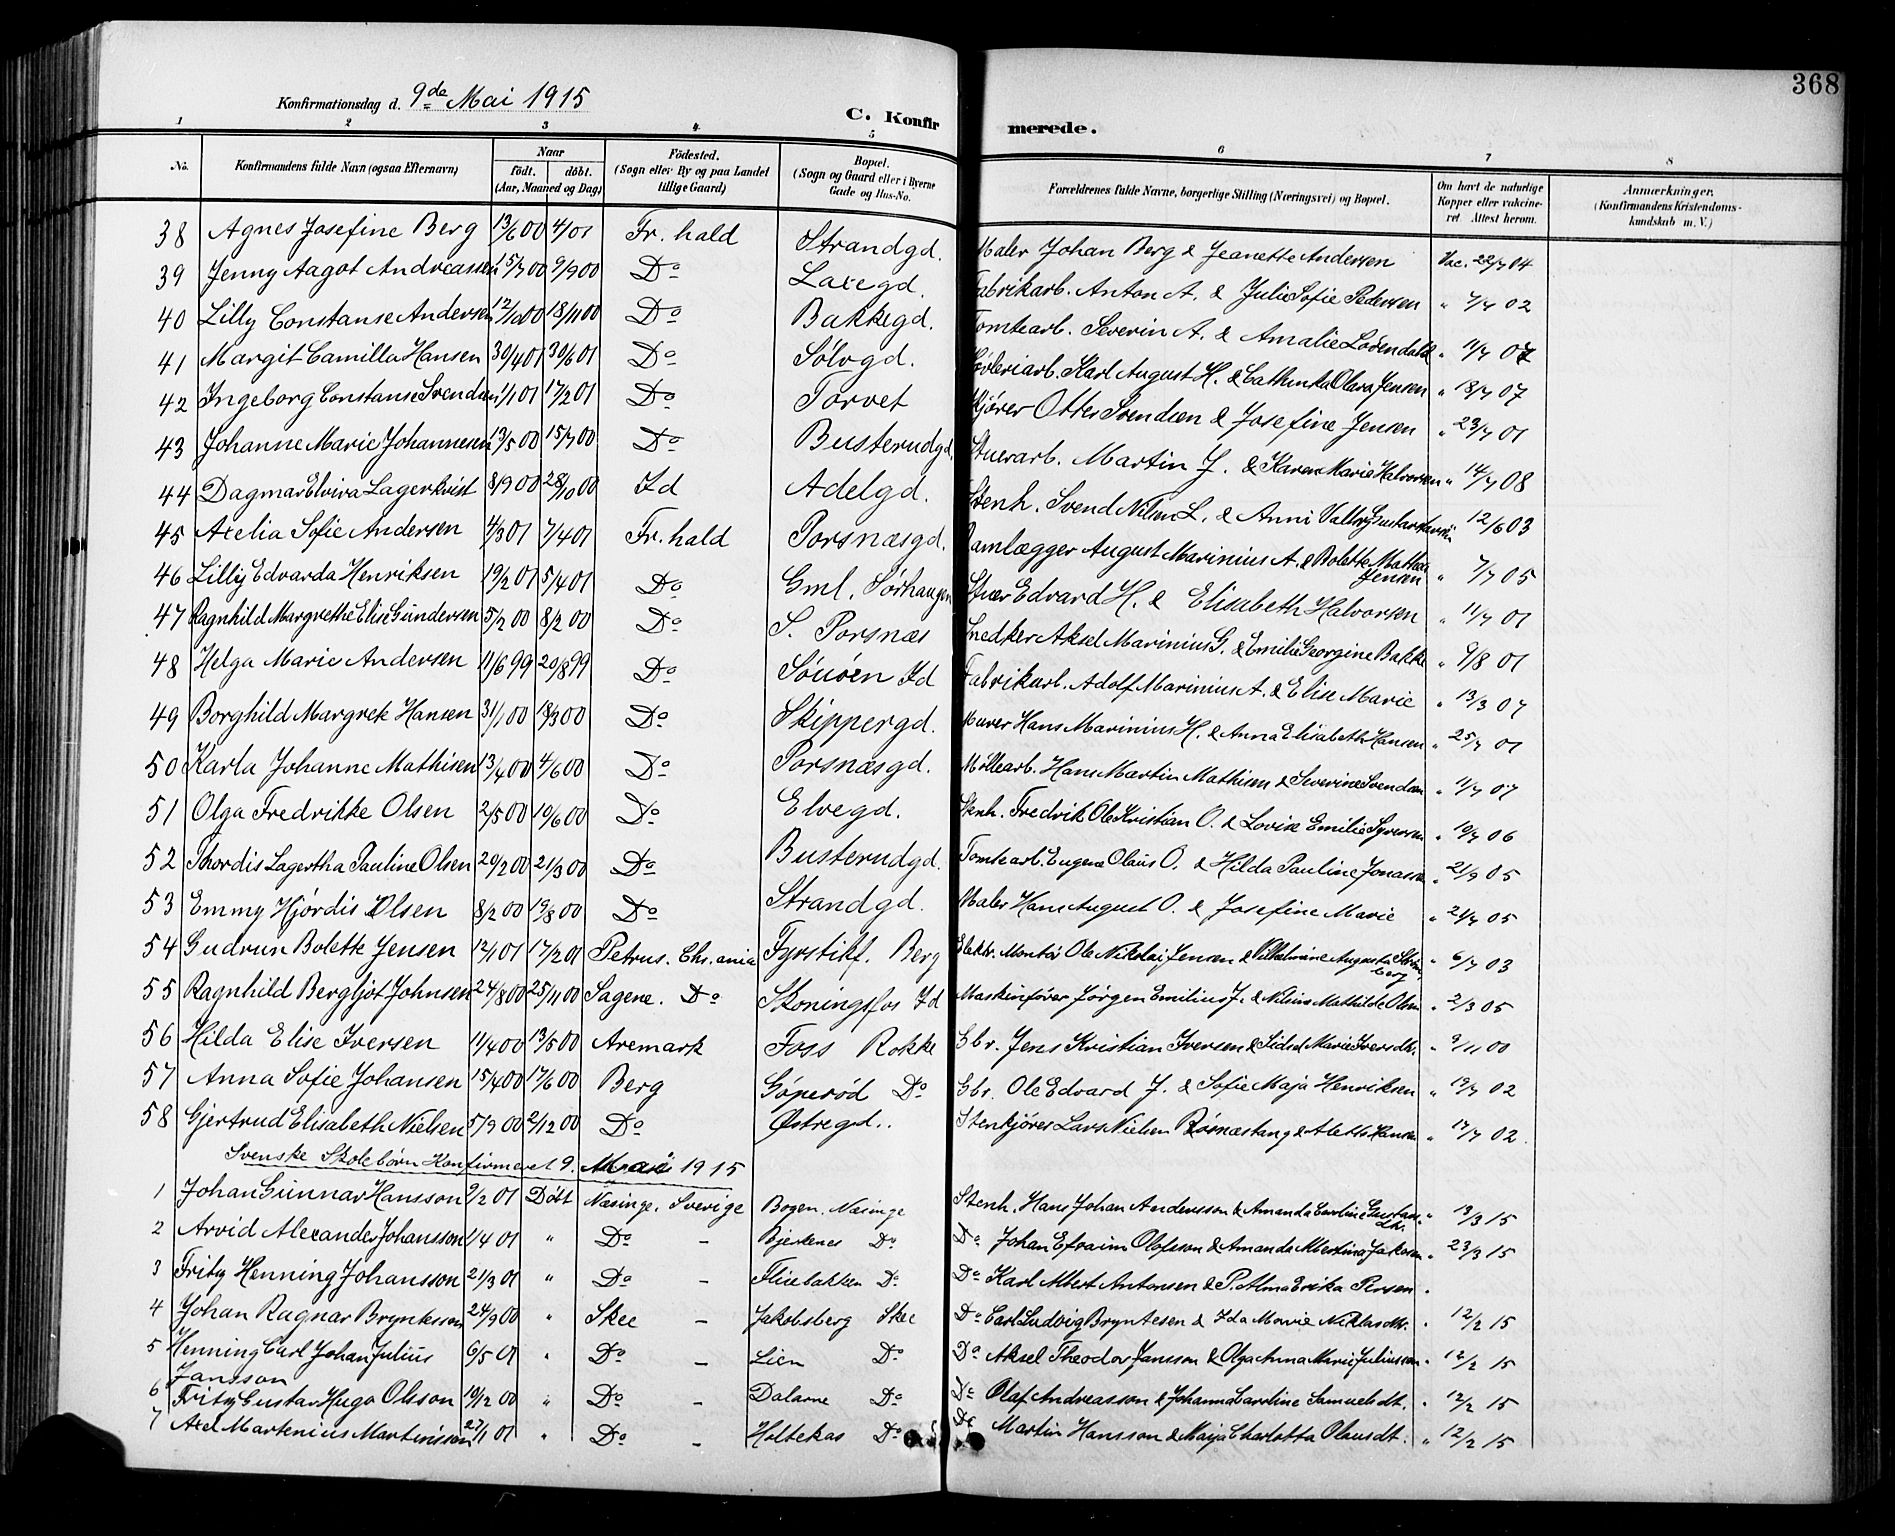 368
Konfirmationsdag d. 9de Mai 1915
C. Konfirmerede.
1 2 3 4 5 6 7 8
No. Konfirmandens fulde Navn (ogsaa Efternavn) Naar födt. döbt. (Aar, Maaned og Dag) Födested. (Sogn eller By og paa Landet tillige Gaard) Bopæl. (Sogn og Gaard eller i Byerne Gade og Hus-No. Forældrenes fulde Navne, borgerlige Stilling (Næringsvei) og Bopæl. Om havt de naturlige Kopper eller vakcineret. Attest herom. Anmærkninger. (Konfirmandens Kristendomskundskab m. V.)
38 Agnes Josefine Berg 13/6 00 4/01 Fr. hald Strandgd. Maler Johan Berg & Jeanette Andersen Vac. 22/7 04
39 Jenny Aagot Andreassen 15/7 00 9/9 00 Do Laxegd. Fabrikarb. Anton A. & Julie Sofie Pedersen " 7/7 02
40 Lilly Constanse Andersen 12/10 00 18/11 00 Do Bakkegd. Tomtearb. Severin A. & Amalie " 11/7 07
41 Margit Camilla Hansen 30/4 01 30/6 01 Do Sølvgd. Høvleriarb. Karl August H. & Cathinka Olava Jensen " 18/7 07
42 Ingeborg Constanse Svendsen 1/1 01 17/2 01 Do Torvet Kjører Otter Svendsen & Josefine Jensen " 23/7 01
43 Johanne Marie Johannesen 13/5 00 15/7 00 Do Busterudgd. Stuerarb. Martin J. & Karen Marie Halvorsen " 14/7 08
44 Dagmar Elvira Lagerkvist 8/9 00 28/10 00 Id Adelgd. Stenh. Svend Nilsen L. & Anni " 12/6 03
45 Axelia Sofie Andersen 4/3 01 7/4 01 Fr. hald Porsnæsgd. Ramlægger August Marinius A. & Bolette Mathea Jensen " 7/7 05
46 Lilly Edvarda Henriksen 19/2 01 5/4 01 Do Gml. Sørhaugen Stuer Edvard H. & Elisabeth Halvorsen " 11/7 01
47 Ragnhild Margrethe Elise Gundersen 5/2 00 8/2 00 Do S. Porsnæs Snedker Aksel Marinius G. & Emilie Georgine Bakke " 9/8 01
48 Helga Marie Andersen 11/6 99 20/8 99 Do Id Fabrikarb. Adolf Marinius A. & Elise Marie " 13/3 07
49 Borghild Margrete Hansen 31/1 00 18/3 00 Do Skippergd. Murer Hans Marinius H. & Anna Elisabeth Hansen " 25/7 01
50 Karla Johanne Mathisen 13/4 00 4/6 00 Do Porsnæsgd. Møllearb. Hans Martin Mathisen & Severine Svendsen " 11/7 07
51 Olga Fredrikke Olsen 2/5 00 10/6 00 Do Elvegd. Stenh. Fredrik Ole Kristian O. & Lovise Emilie Syversen " 19/7 06
52 Thordis Lagertha Pauline Olsen 20/2 00 21/3 00 Do Busterudgd. Tomtearb. Eugen Olaus O. & Hilda Pauline Jonassen " 21/9 05
53 Emmy Hjørdis Olsen 8/2 00 19/8 00 Do Strandgd. Maler Hans August O. & Josefine Marie " 21/7 05
54 Gudrun Bolette Jensen 12/1 01 17/2 01 Petrus. Chr.ania Fyrstikf. Berg Elektr. Montør Ole Nikolai Jensen & Vilhelmine Augusta " 6/7 03
55 Ragnhild Bergljot Johnsen 24/8 00 25/11 00 Sagene. Do Skoningsfos Id Maskinfører Jørgen Emilius J. & Nilsine Mathilde Olsen " 2/3 05
56 Hilda Elise Iversen 11/4 00 13/5 00 Aremark Foss Rokke Gbr. Jens Kristian Iversen & Marie Iversdtr. " 9/11 00
57 Anna Sofie Johansen 15/4 00 17/6 00 Berg Gøperød Do Gbr. Ole Edvard J. & Sofie Maja Henriksen " 19/7 02
58 Gjertrud Elisabeth Nielsen 5/9 00 2/12 00 Do Østregd. Stenkjører Lars Nielsen Røsnæstang & Alette Hansen " 17/7 02.
Svenske Skolebørn Konfirmeret 9. Mai 1915
1 Johan Gunnar Hansson 9/2 01 Døbt Næsinge. Sverige Bogen. Næsinge Stenh. Hans Johan Andersson & Amanda Caroline " 13/3 15
2 Arvid Alexander Johansson 1/4 01 " Do - Bjerkenes Do Do Johan Efraim Olofsson & Amanda Albertina Jakobsen " 23/3 15
3 Fritz Henning Johansson 21/3 01 " Do - Flisebakken Do Do Karl Albert Antonsen & P. Alma Erika Persen "
4 Johan Ragnar Bryntesson 24/9 00 " Skee - Jakobsberg Skee Do Carl Ludvig Bryntesen & Ida Marie Niklasdtr. " 12/2 15
5 Henning Carl Johan Julius Jansson 6/5 01 " Do - Lien Do Do Aksel Theodor Jansson & Olga Anna Marie Juliusson " 12/2 15
6 Fritz Gustav Hugo Olsson 10/12 00 " Do - Dalarne Do Do Olaf Andreasson & Johanna Caroline Samuelsdt. " 12/2 15
7 Axel Martenius Martinsson 27/1 01 " Do - Holtekas Do Do Martin Hansson & Maja Charlotta Olausdt. " 12/2 15